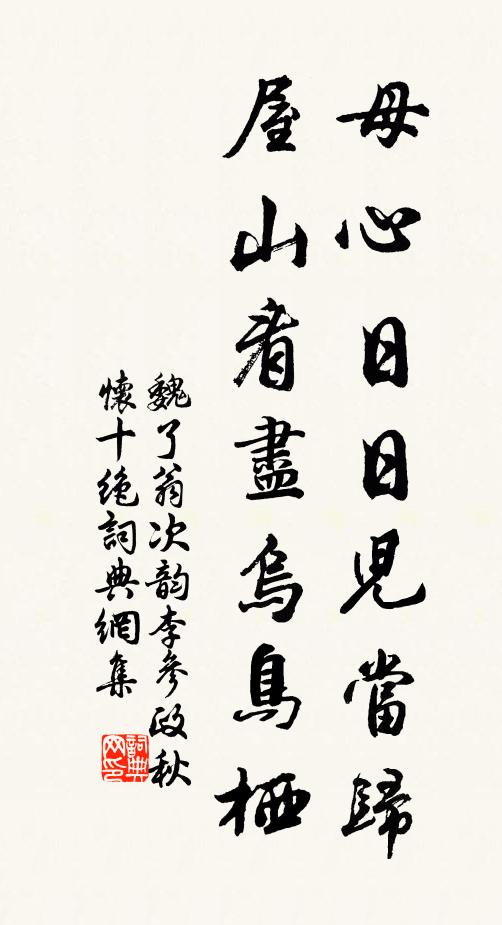 母心日日兒當歸
屋山看盡烏鳥栖
魏了翁次韵李參政秋
懷十絶詞典網集
詞典网印